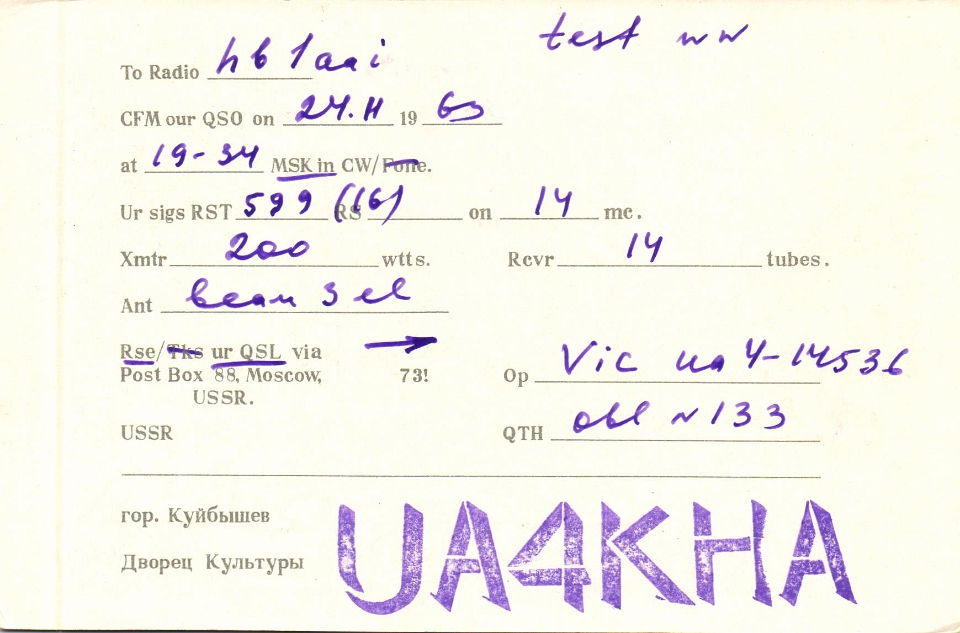 test ww
To Radio hb1aai
CFM our QSO on 24.II 19 63
at 19-34 MSK in CW/Fone.
Ur sigs RST 599 (16) RS on 14 mc.
Xmtr 200 wtts. Rcvr 14 tubes.
Ant beam 3 el
Rse/Tks ur QSL via
Post Box 88, Moscow, 73! Op Vic ua4-14536
USSR.
USSR QTH obl N133
гор. Куйбышев
Дворец Культуры
UA4KHA